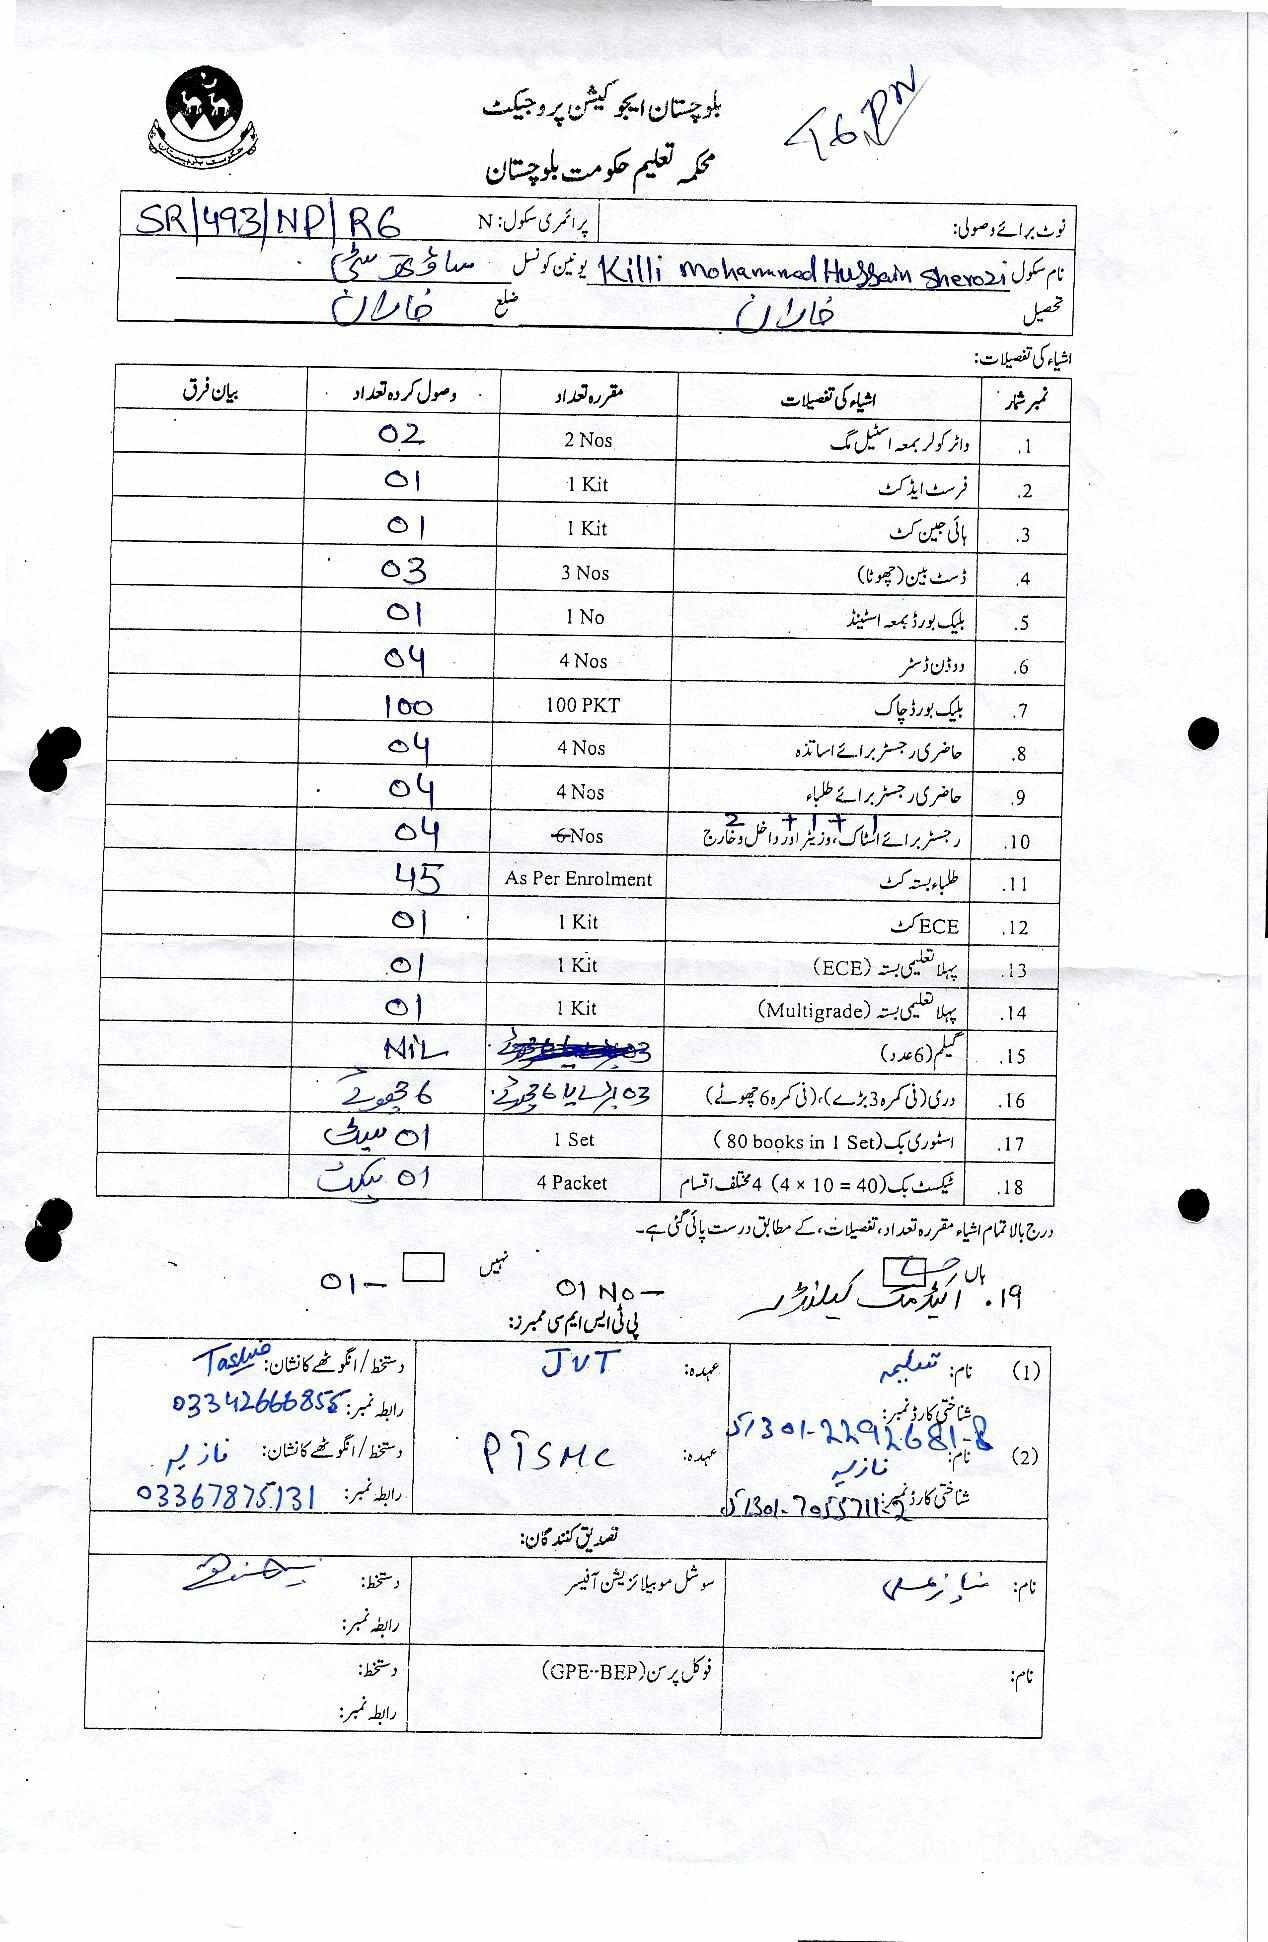 بلوچستان ایجوکیشن پروجیکٹ
محکمہ تعلیم حکومت بلوچستان
نوٹ برائے وصولی: پرائمری سکول: N SR/493/NP/R6
نام سکول Killi Mohammad Hussain Sherozi یونین کونسل ساؤتھ سٹی
تحصیل خاران ضلع خاران
اشیاء کی تفصیلات:
نمبر شمار اشیاء کی تفصیلات مقررہ تعداد وصول کردہ تعداد بیان فرق
1. واٹر کولر بمعہ اسٹیل مگ 2 Nos 02
2. فرسٹ ایڈ کٹ 1 Kit 01
3. ہائی جین کٹ 1 Kit 01
4. ڈسٹ بین (چھوٹا) 3 Nos 03
5. بلیک بورڈ بمعہ اسٹینڈ 1 No 01
6. ووڈن ڈسٹر 4 Nos 04
7. بلیک بورڈ چاک 100 PKT 100
8. حاضری رجسٹر برائے اساتذہ 4 Nos 04
9. حاضری رجسٹر برائے طلباء 4 Nos 04
2 + 1 + 1
10. رجسٹر برائے اسٹاک، وزیٹر اور داخل و خارج 6 Nos 04
11. طلباء بستہ کٹ As Per Enrolment 45
12. ECE کٹ 1 Kit 01
13. پہلا تعلیمی بستہ (ECE) 1 Kit 01
14. پہلا تعلیمی بستہ (Multigrade) 1 Kit 01
15. گلیم (6 عدد) NiL
16. دری (فی کمرہ 3 بڑے)، (فی کمرہ 6 چھوٹے) 03 بڑے یا 6 چھوٹے 6 چھوٹے
17. اسٹوری بک (80 books in 1 Set) 1 Set 01 سیٹ
18. ٹیکسٹ بک (4 x 10 = 40) 4 مختلف اقسام 4 Packet 01 پیکٹ
درج بالا تمام اشیاء مقررہ تعداد، تفصیلات، کے مطابق درست پائی گئی ہے۔
ہاں نہیں
۱۹. اکیڈمک کیلنڈر 01 No – 01 –
پی ٹی ایس ایم سی ممبرز:
(1) نام: تسلیمہ عہدہ: JVT دستخط/انگوٹھے کا نشان:
شناختی کارڈ نمبر: 51301-2292681-8 رابطہ نمبر: 03342666855
(2) نام: نازیہ عہدہ: PTSMC دستخط/انگوٹھے کا نشان: نازیہ
شناختی کارڈ نمبر: 51301-7055711-2 رابطہ نمبر: 03367875131
تصدیق کنندگان:
نام: سوشل موبیلائزیشن آفیسر دستخط:
رابطہ نمبر:
نام: فوکل پرسن (GPE-BEP) دستخط:
رابطہ نمبر: